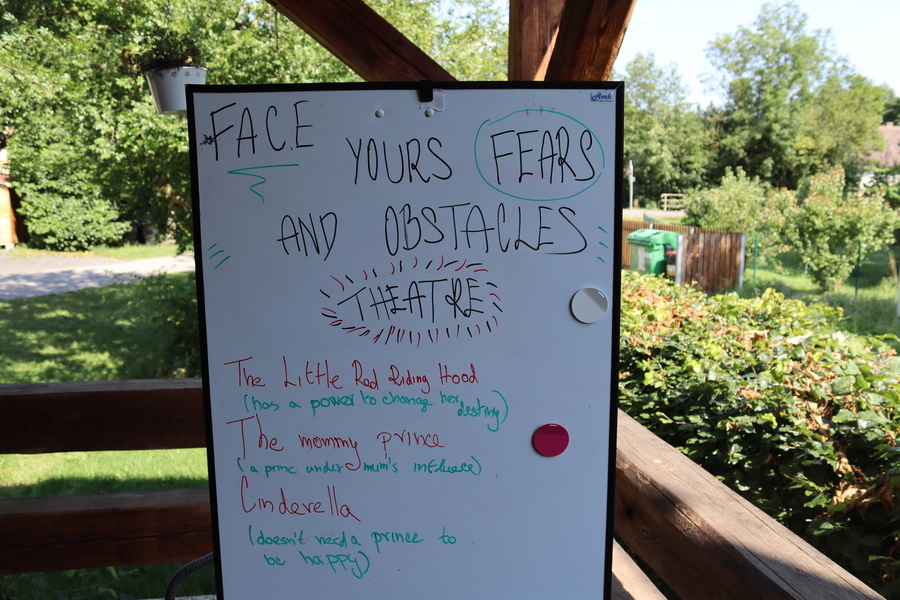 FACE
YOURS FEARS
AND OBSTACLES
THEATRE
The Little Red Riding Hood
(has a power to change her destiny)
The mommy prince
(a princ under mum's influece)
Cinderella
(doesn't need a prince to
be happy)